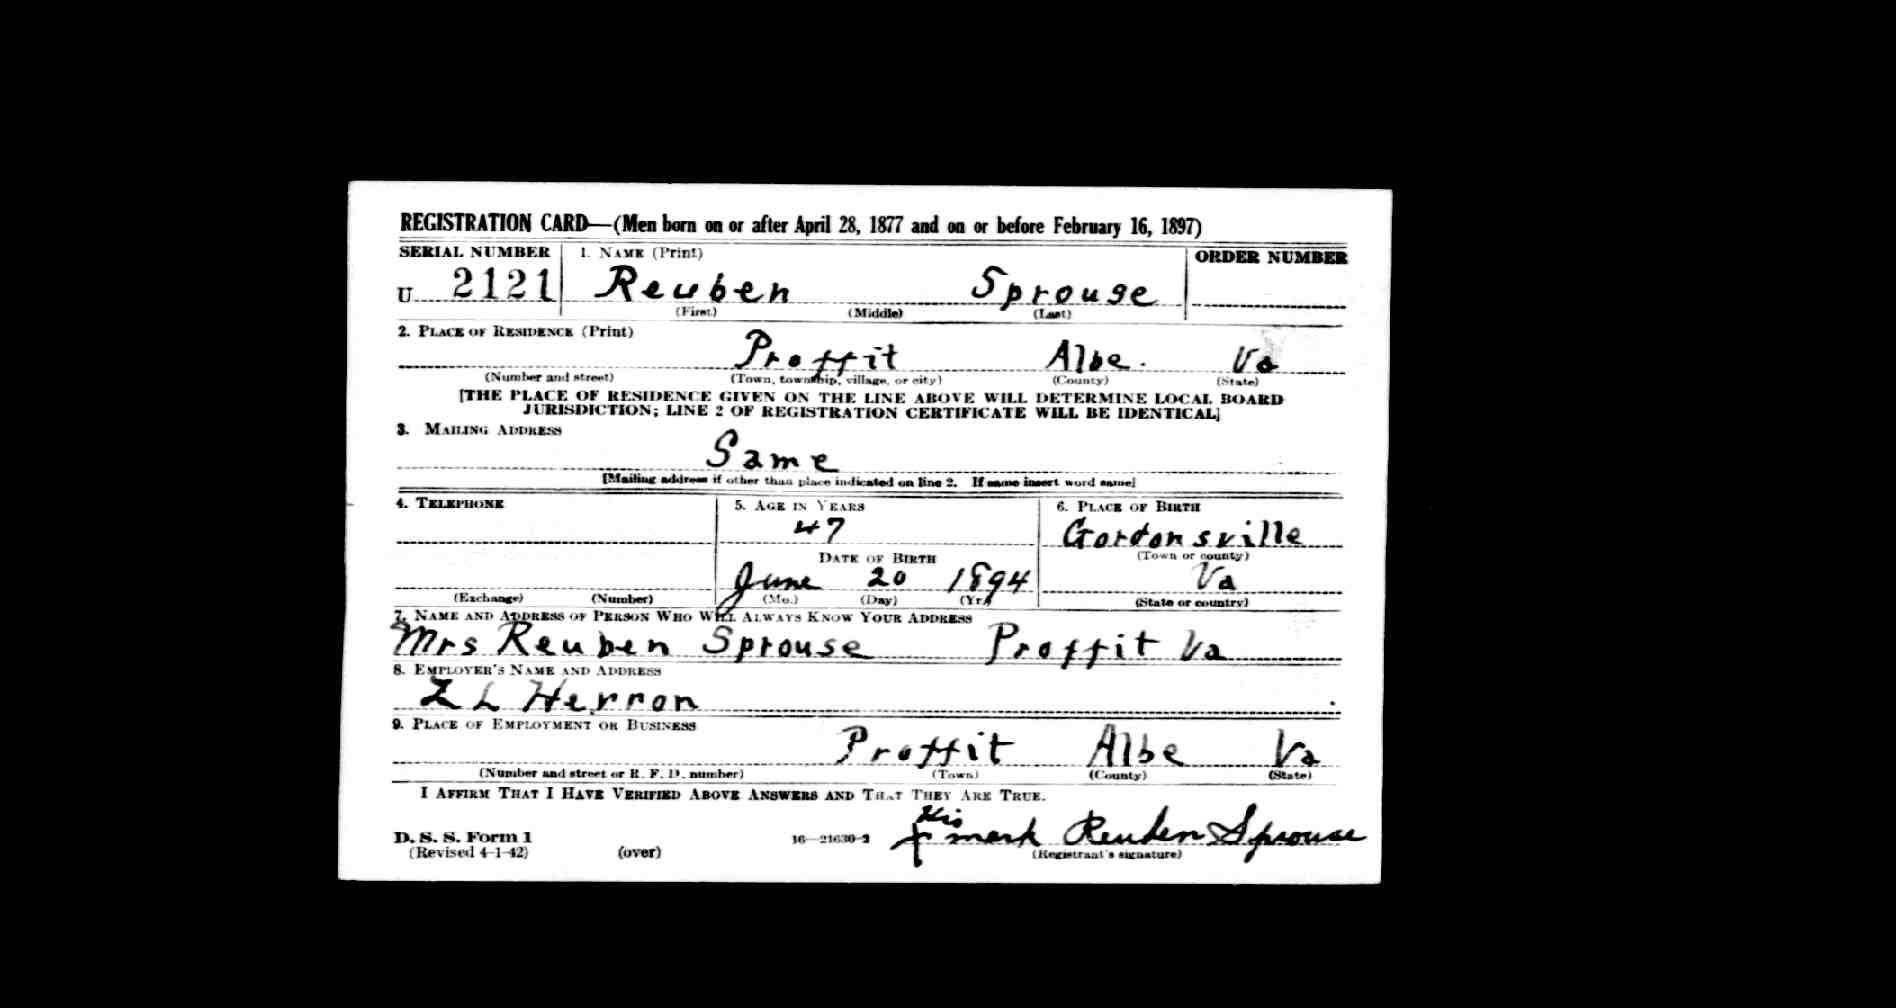 REGISTRATION CARD—(Men born on or after April 28, 1877 and on or before February 16, 1897)
SERIAL NUMBER 1. NAME (Print) ORDER NUMBER
U 2121 Reuben Sprouse
(First) (Middle) (Last)
2. PLACE OF RESIDENCE (Print)
Proffit Albe. Va
(Number and street) (Town, township, village, or city) (County) (State)
[THE PLACE OF RESIDENCE GIVEN ON THE LINE ABOVE WILL DETERMINE LOCAL BOARD
JURISDICTION; LINE 2 OF REGISTRATION CERTIFICATE WILL BE IDENTICAL]
3. MAILING ADDRESS
Same
[Mailing address if other than place indicated on line 2. If same insert word same]
4. TELEPHONE 5. AGE IN YEARS 6. PLACE OF BIRTH
47 Gordonsville
DATE OF BIRTH (Town or county)
June 20 1894 Va
(Exchange) (Number) (Mo.) (Day) (Yr.) (State or country)
7. NAME AND ADDRESS OF PERSON WHO WILL ALWAYS KNOW YOUR ADDRESS
Mrs Reuben Sprouse Proffit Va
8. EMPLOYER'S NAME AND ADDRESS
L Herron
9. PLACE OF EMPLOYMENT OR BUSINESS
Proffit Albe Va
(Number and street or R. F. D. number) (Town) (County) (State)
I AFFIRM THAT I HAVE VERIFIED ABOVE ANSWERS AND THAT THEY ARE TRUE.
His
D. S. S. Form 1 16—21630-2 mark Reuben Sprouse
(Revised 4-1-42) (over) (Registrant's signature)